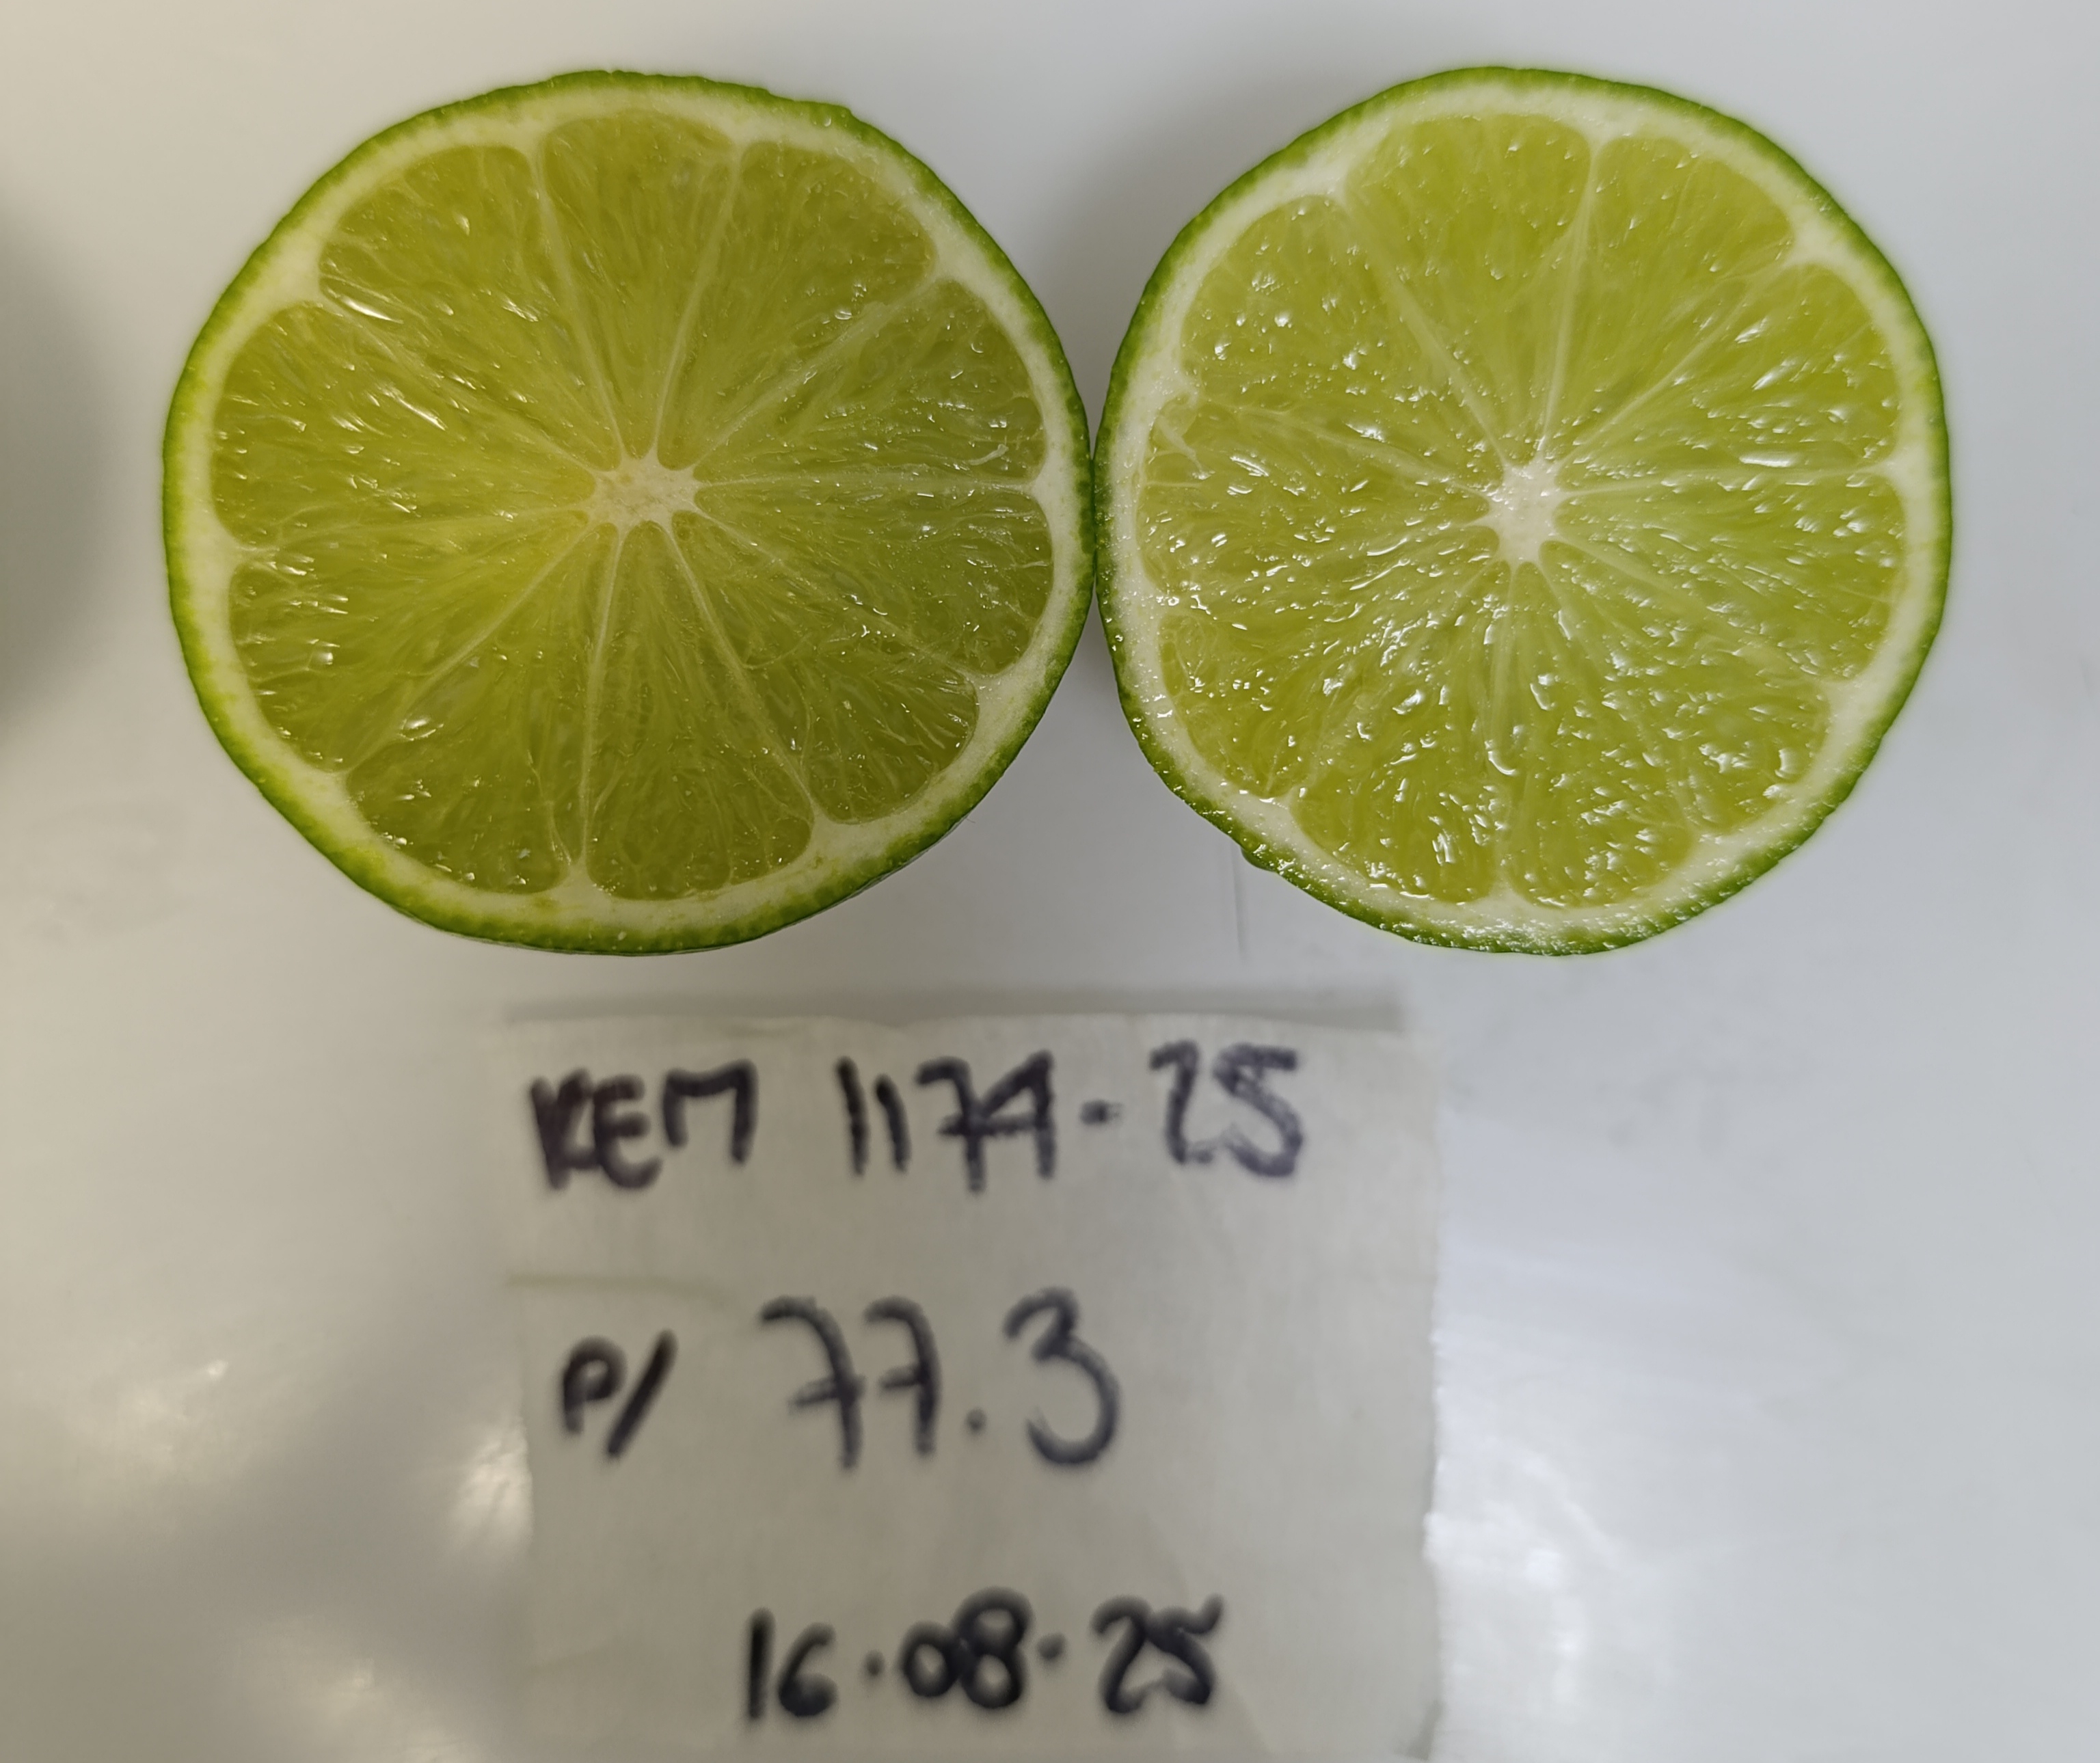 KEM 1174-25
P/ 77.3
16.08.25